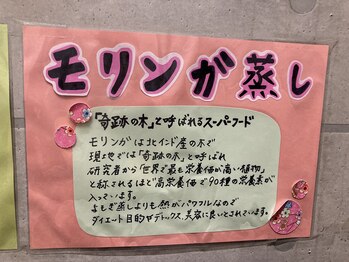 モリンガ蒸し
「奇跡の木」と呼ばれるスーパーフード
モリンガは北インド産の木で
現地では「奇跡の木」と呼ばれ
研究者から「世界で最も栄養価が高い植物」
と称されるほど高栄養価で90種の栄養素が
入っています。
よもぎ蒸しよりも熱がパワフルなので
ダイエット目的やデトックス、美容に良いとされています。